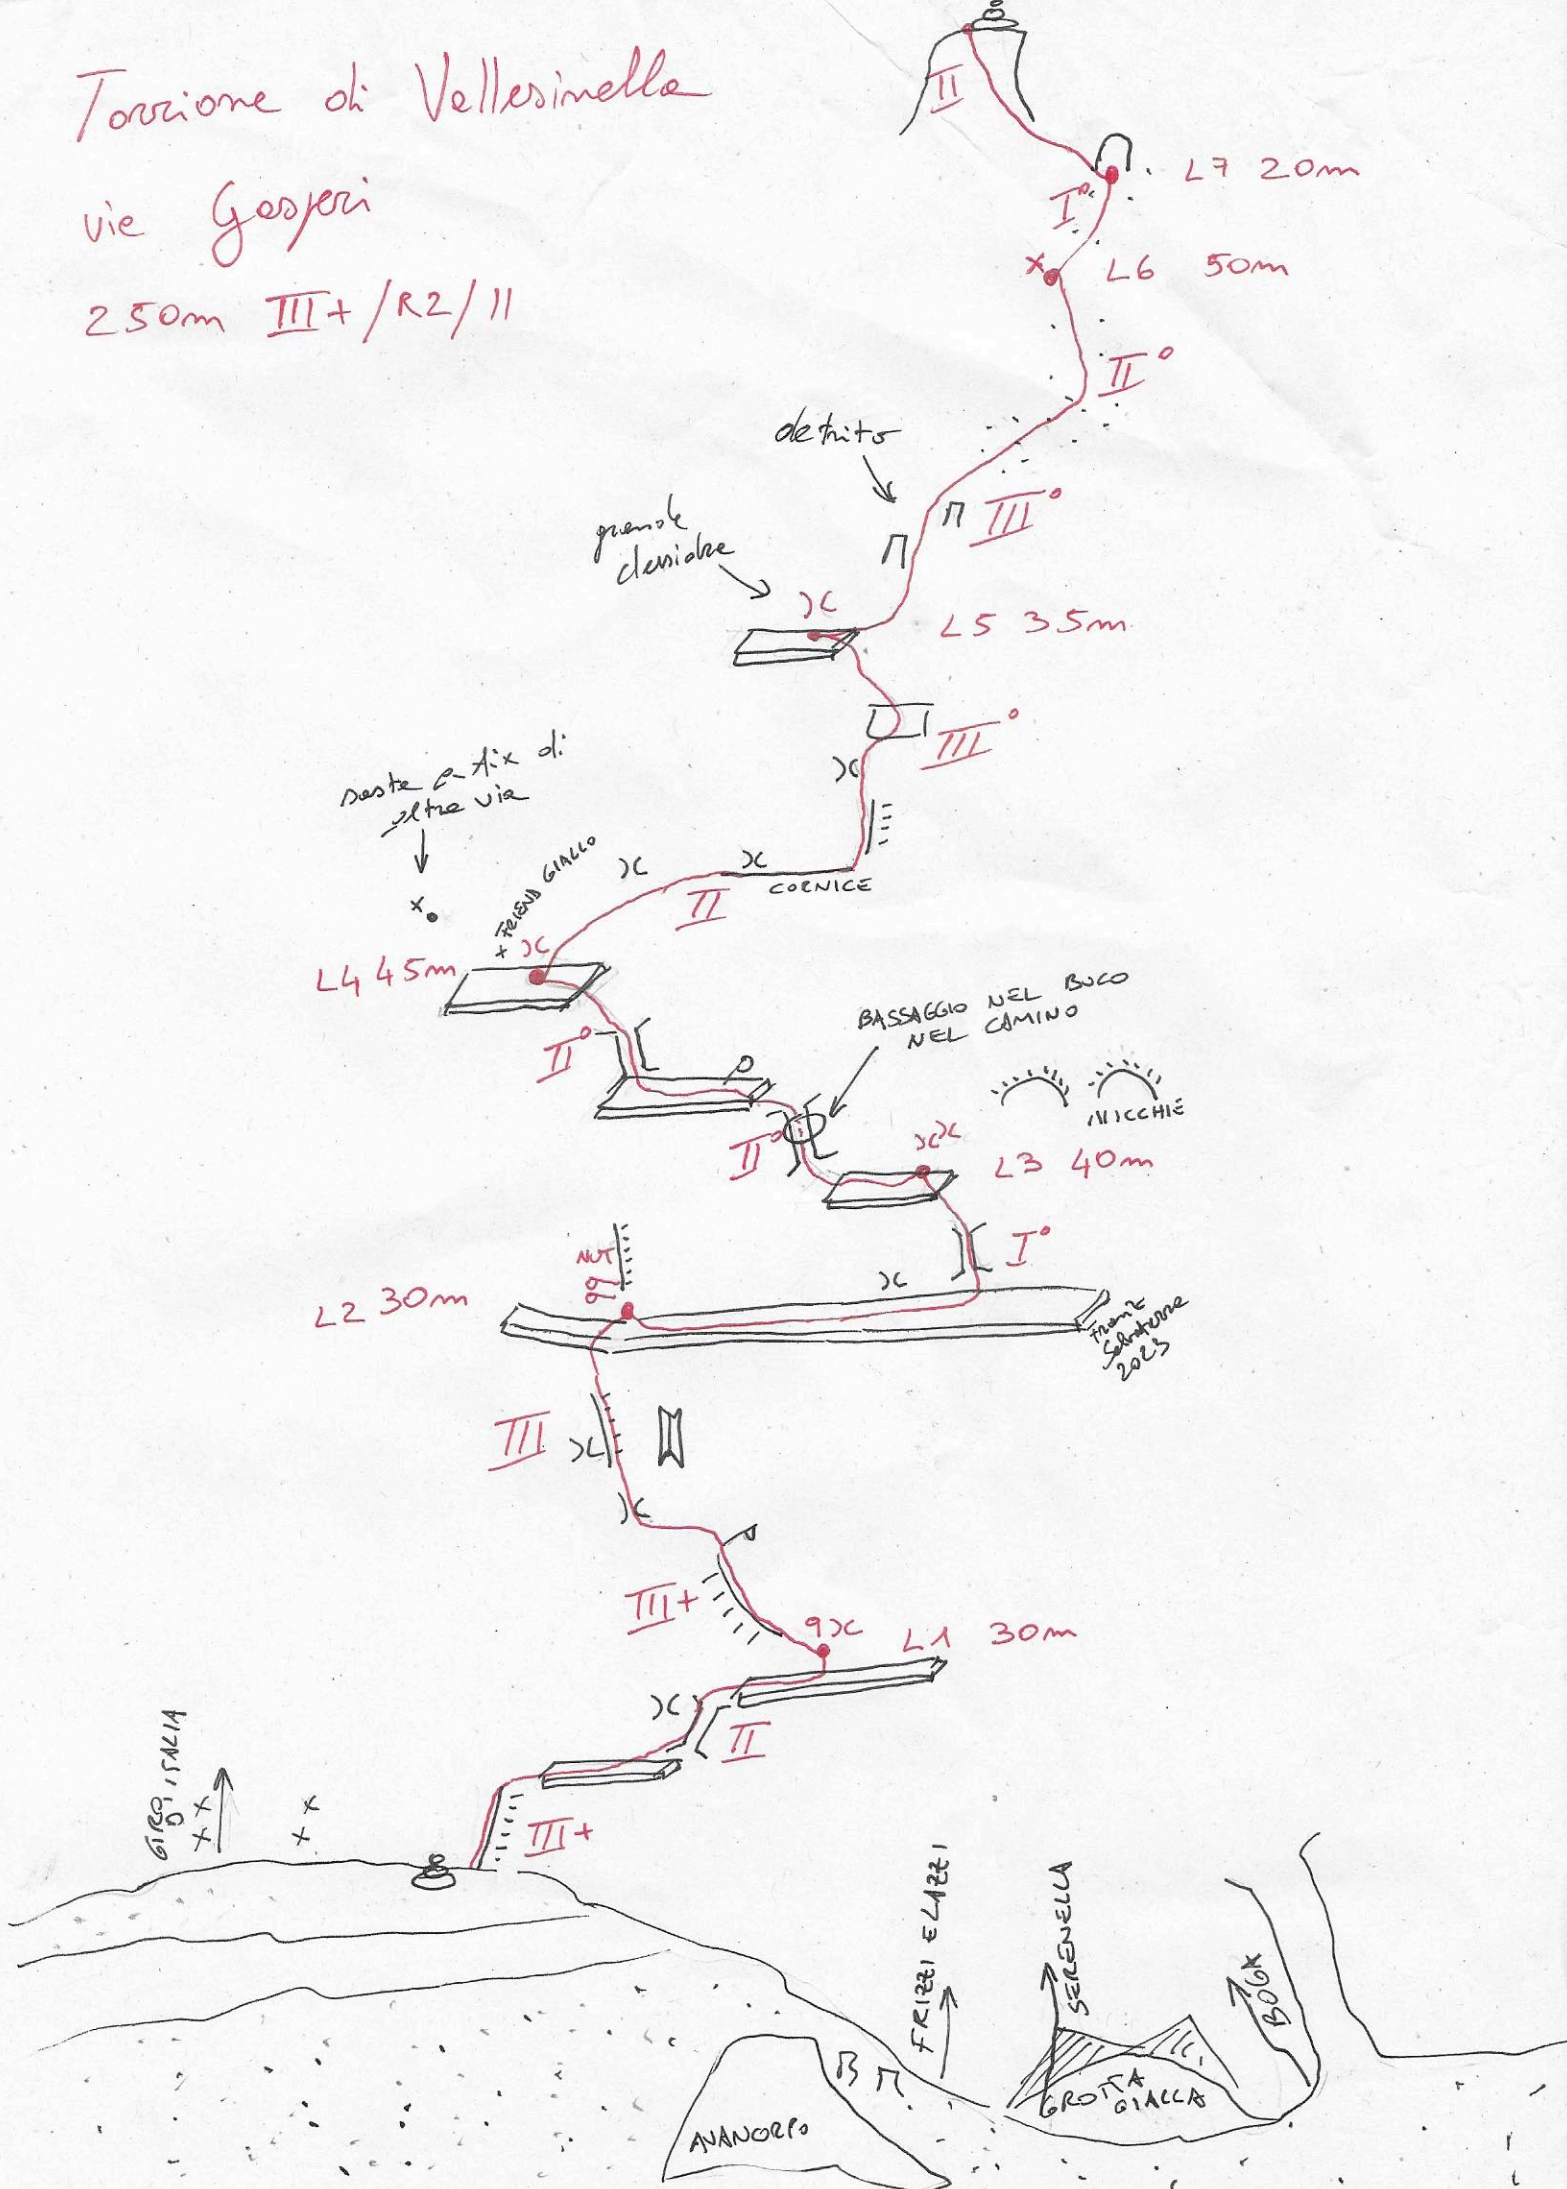 Torrione di Vallesinella
via Gasperi
250m III+/R2/II
II
L7 20m
I°
x
L6 50m
II°
detrito
III°
grande
clessidra
L5 35m
III°
sosta a fix di
altra via
x
+ FRIEND GIALLO
CORNICE
II
L4 45m
BASSAGGIO NEL BUCO
NEL CAMINO
II°
NICCHIE
II°
L3 40m
NUT
I°
L2 30m
Franz
Salvaterra
2023
III
III+
L1 30m
II
GIRO
D'ITALIA
x x
x x
x
x
III+
FRIZZI E LAZZI
SERENELLA
BOGA
GROTTA
GIALLA
AVANCORPO